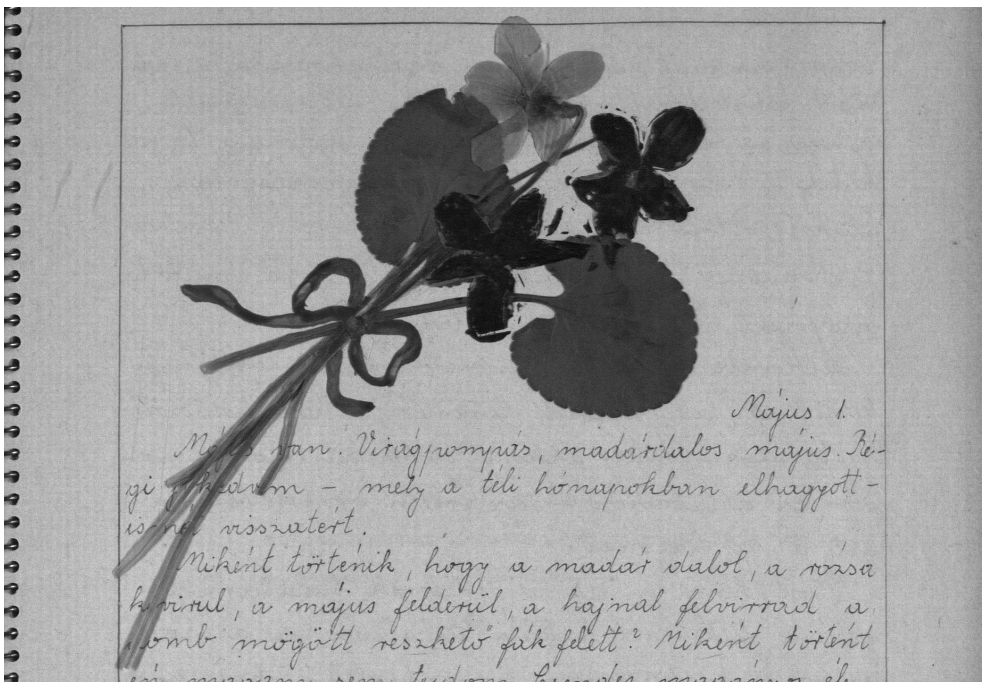 Május 1.
Május van. Virágpompás, madárdalos május. Ré-
gi jókedvem – mely a téli hónapokban elhagyott –
ismét visszatért.
Miként történik, hogy a madár dalol, a rózsa
kivirul, a május felderül, a hajnal felvirrad a
domb mögött reszkető fák felett? Miként történt
én magam sem tudom